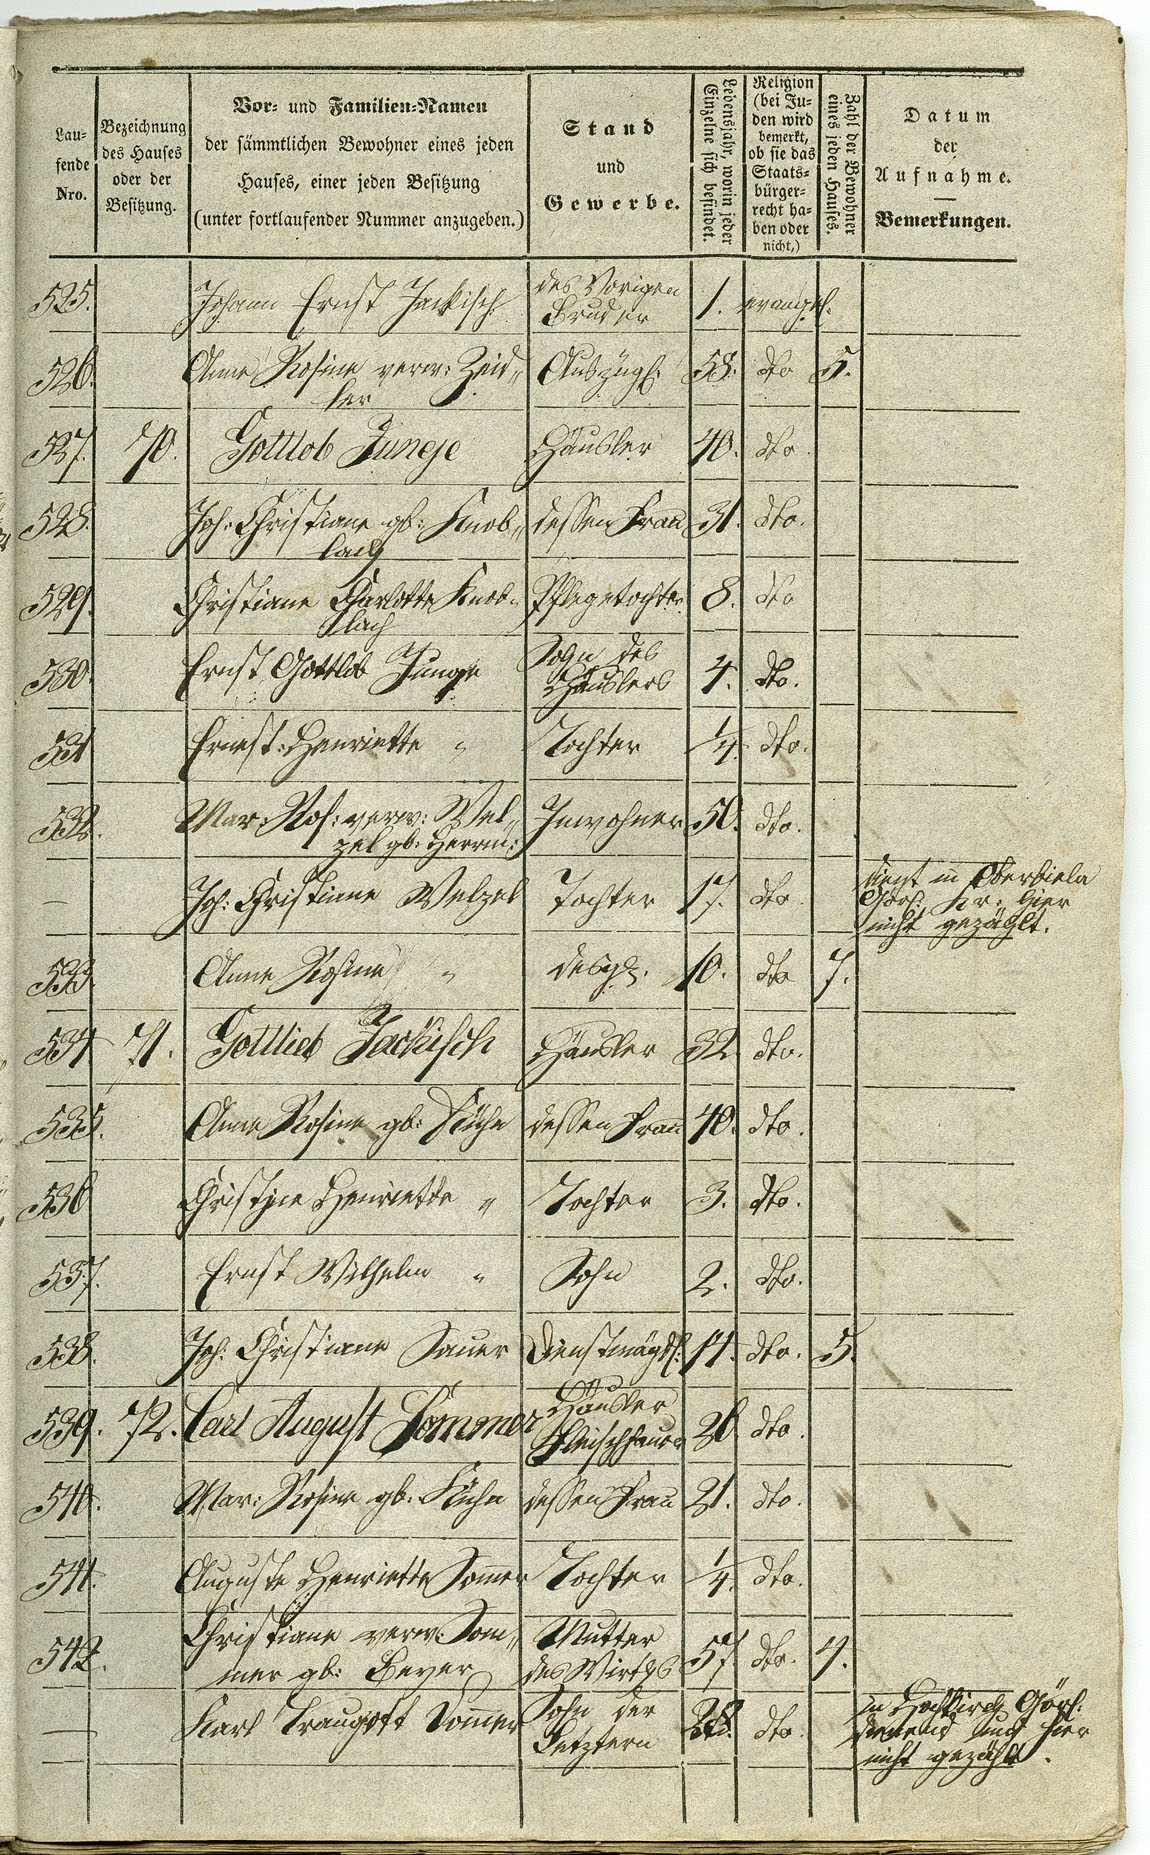 Lau-
fende
Nro.
Bezeichnung
des Hauses
oder der
Besitzung.
Vor- und Familien-Namen
der sämmtlichen Bewohner eines jeden
Hauses, einer jeden Besitzung
(unter fortlaufender Nummer anzugeben.)
Stand
und
Gewerbe.
Lebensjahr, worin jeder
Einzelne sich befindet.
Religion
(bei Ju-
den wird
bemerkt,
ob sie das
Staats-
bürger-
recht ha-
ben oder
nicht,)
Zahl der Bewohner
eines jeden Hauses.
Datum
der
Aufnahme.
Bemerkungen.
525. Johann Ernst Jackisch des Vorigen 1. evangel.
Bruder
526. Anne Rosine verw: Zeid- Auszügl. 58. dto 5.
ler
527. 70. Gottlob Junge Häusler 40. dto.
528. Joh: Christiane gb: Knob- dessen Frau 31. dto.
lach
529. Christiane Charlotte Knob- Pflegetochter 8. dto
lach
530. Ernst Gottlob Junge Sohn des 4. dto.
Häuslers
531 Ernest: Henriette " Tochter 1/4. dto.
532. Mar: Ros: verw: Wel- Inwohner 50. dto.
zel gb: Herrm:
— Joh: Christiane Welzel Tochter 17. dto. dient in Oberbiela
Görl: Kr: hier
nicht gezählt.
533. Anne Rosine " desgl. 10. dto 7.
534 71. Gottlieb Jackisch Häusler 32 dto.
535. Anne Rosine gb: Kühn dessen Frau 40. dto.
536 Christine Henriette " Tochter 3. dto.
537. Ernst Wilhelm " Sohn 2. dto.
538. Joh: Christiane Sauer Dienstmägdl: 14. dto. 5.
539. 72. Carl August Sommer Häusler 26 dto.
Fleischhauer
540. Mar: Rosine gb: Kühn dessen Frau 21. dto.
541. Auguste Henriette Sommer Tochter 1/4. dto.
542. Christiane verw: Som- Mutter 57. dto. 4.
mer gb: Beyer des Wirths
— Karl Traugott Sommer Sohn der 28. dto. in Hochkirch Görl:
Letztern dienend und hier
nicht gezählt.